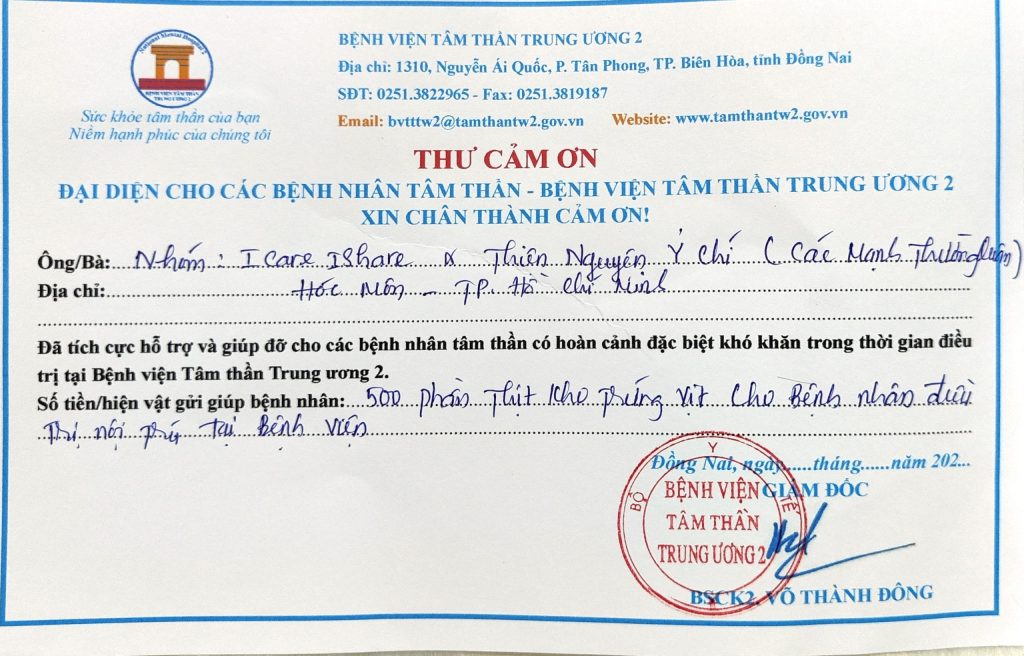 National Mental Hospital 2
BỆNH VIỆN TÂM THẦN
TRUNG ƯƠNG 2
Sức khỏe tâm thần của bạn
Niềm hạnh phúc của chúng tôi
BỆNH VIỆN TÂM THẦN TRUNG ƯƠNG 2
Địa chỉ: 1310, Nguyễn Ái Quốc, P. Tân Phong, TP. Biên Hòa, tỉnh Đồng Nai
SĐT: 0251.3822965 - Fax: 0251.3819187
Email: bvtttw2@tamthantw2.gov.vn Website: www.tamthantw2.gov.vn
THƯ CẢM ƠN
ĐẠI DIỆN CHO CÁC BỆNH NHÂN TÂM THẦN - BỆNH VIỆN TÂM THẦN TRUNG ƯƠNG 2
XIN CHÂN THÀNH CẢM ƠN!
Ông/Bà: Nhóm: I Care IShare & Thiện Nguyện Ý Chí ( Các Mạnh Thường Quân)
Địa chỉ: Hóc Môn - TP. Hồ Chí Minh
Đã tích cực hỗ trợ và giúp đỡ cho các bệnh nhân tâm thần có hoàn cảnh đặc biệt khó khăn trong thời gian điều
trị tại Bệnh viện Tâm thần Trung ương 2.
Số tiền/hiện vật gửi giúp bệnh nhân: 500 phần Thịt Kho trứng Vịt Cho Bệnh nhân điều
Trị nội trú tại Bệnh viện
Đồng Nai, ngày......tháng......năm 202...
GIÁM ĐỐC
BỘ Y TẾ
BỆNH VIỆN
TÂM THẦN
TRUNG ƯƠNG 2
BSCK2. VÕ THÀNH ĐÔNG